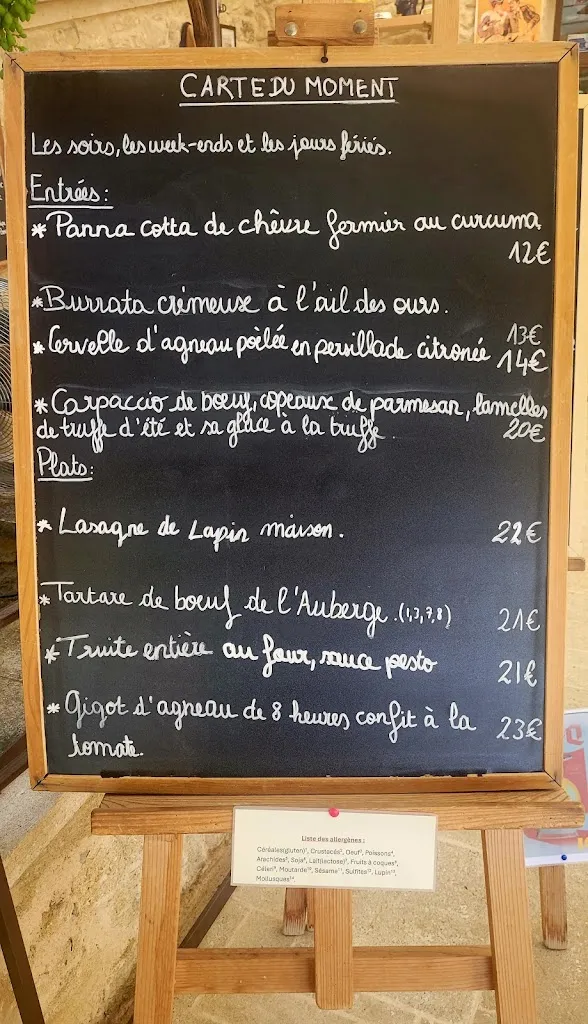 CARTE DU MOMENT
Les soirs, les week-ends et les jours fériés.
Entrées:
* Panna cotta de chêvre fermier au curcuma
12€
* Burrata crémeuse à l'ail des ours.
13€
* Cervelle d'agneau poêlée en persillade citronée 14€
* Carpaccio de boeuf, copeaux de parmesan, lamelles
de truffe d'été et sa glace à la truffe. 20€
Plats:
* Lasagne de Lapin maison. 22€
* Tartare de boeuf de l'Auberge. (1,3,7,8) 21€
* Truite entière au four, sauce pesto 21€
* Gigot d'agneau de 8 heures confit à la 23€
tomate.
Liste des allergènes :
Céréales(gluten)¹, Crustacés², Oeuf³, Poissons⁴,
Arachides⁵, Soja⁶, Lait(lactose)⁷, Fruits à coques⁸,
Céleri⁹, Moutarde¹⁰, Sésame¹¹, Sulfites¹², Lupin¹³,
Mollusques¹⁴.